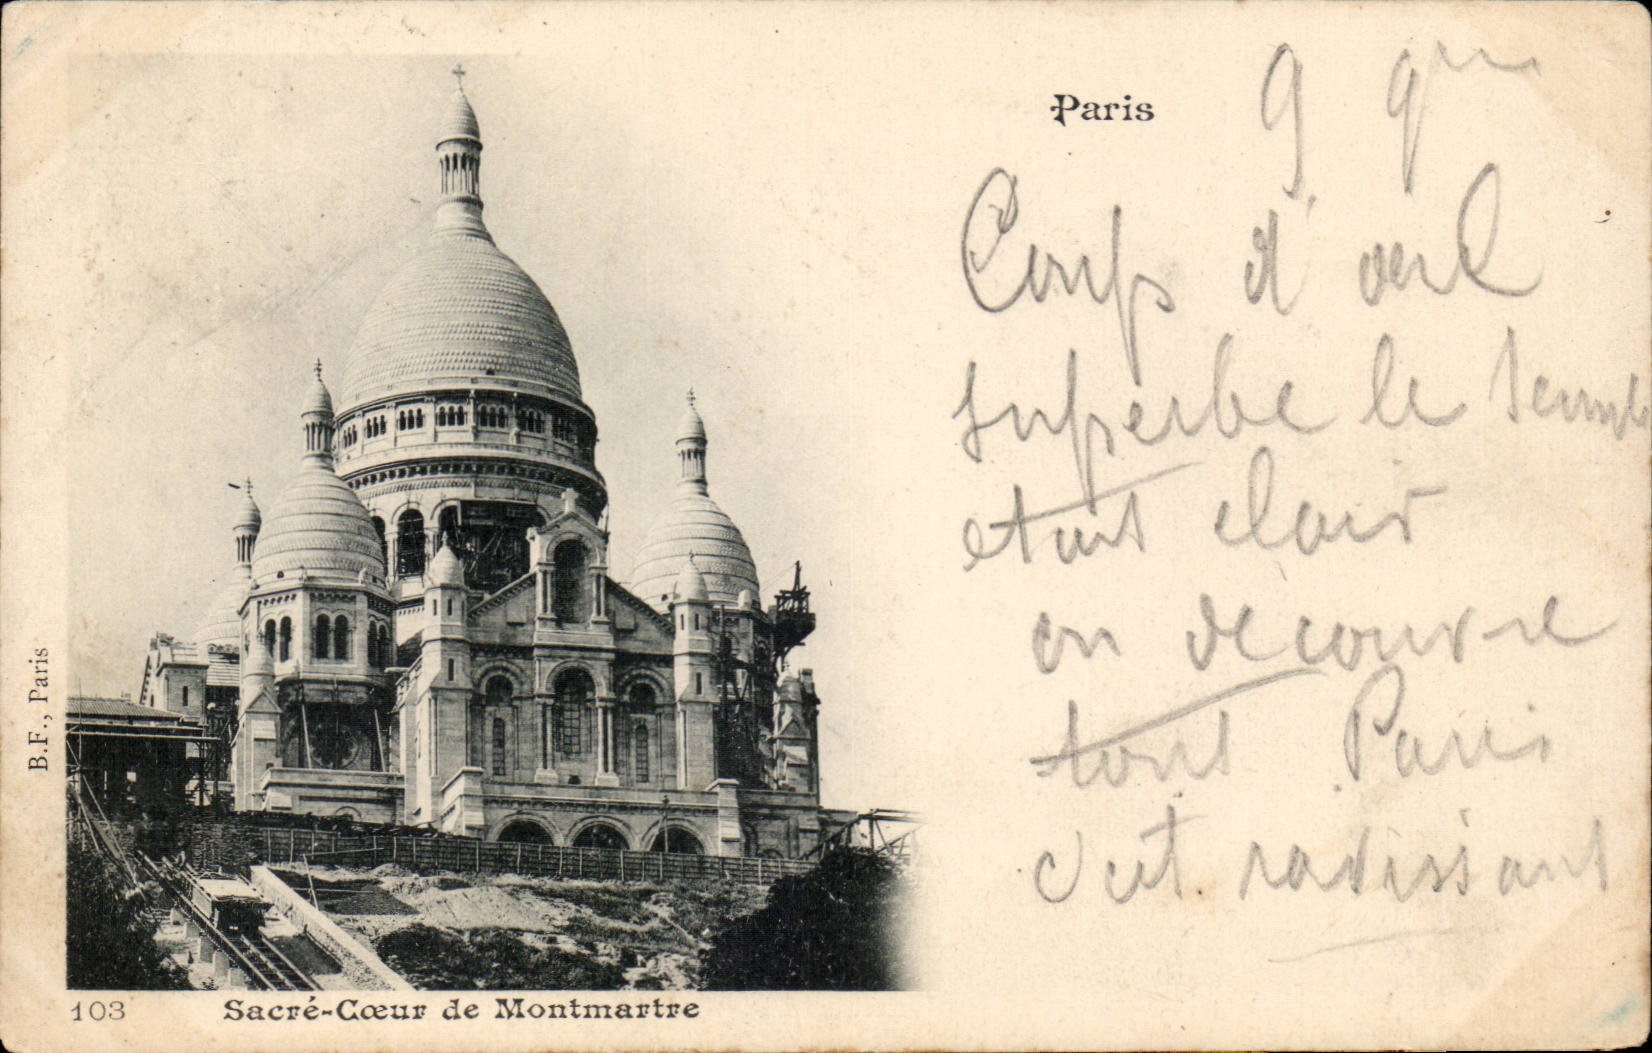 Paris
9 9
Coup d'oeil
superbe le temps
etait clair
on decouvre
tout Paris
c'est ravissant
B.F., Paris
103 Sacré-Cœur de Montmartre